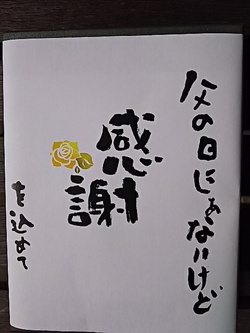 父の日じゃないけど
感謝
を込めて